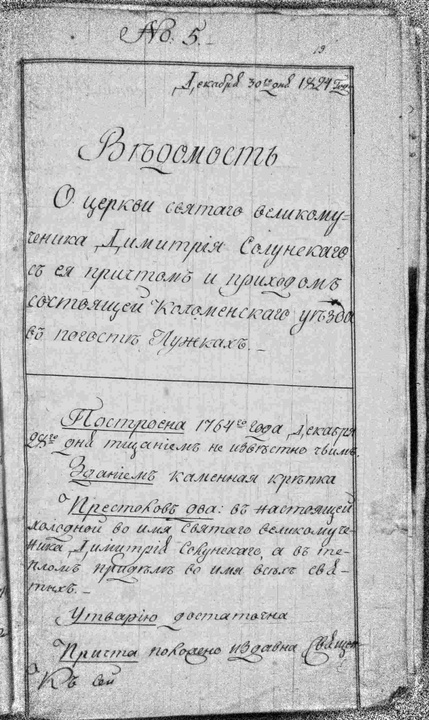 No. 5.
19
Декабря 30го дня 1824 Года
Вѣдомость
О церкви святаго великому-
ченика Димитрія Солунскаго
съ ея причтомъ и приходомъ
состоящей Коломенскаго уѣзда
въ погостѣ Лужкахъ.
Построена 1764го года Декабря
28го дня тщаніемъ не извѣстно чьимъ
Зданіемъ каменная крѣпка
Престоловъ два: въ настоящей
холодной во имя святаго великомуче-
ника Димитрія Солунскаго, а въ те-
пломъ придѣлѣ во имя всѣхъ свя-
тыхъ.
Утварію достаточна
Причта положено издавна Священ
Къ сей